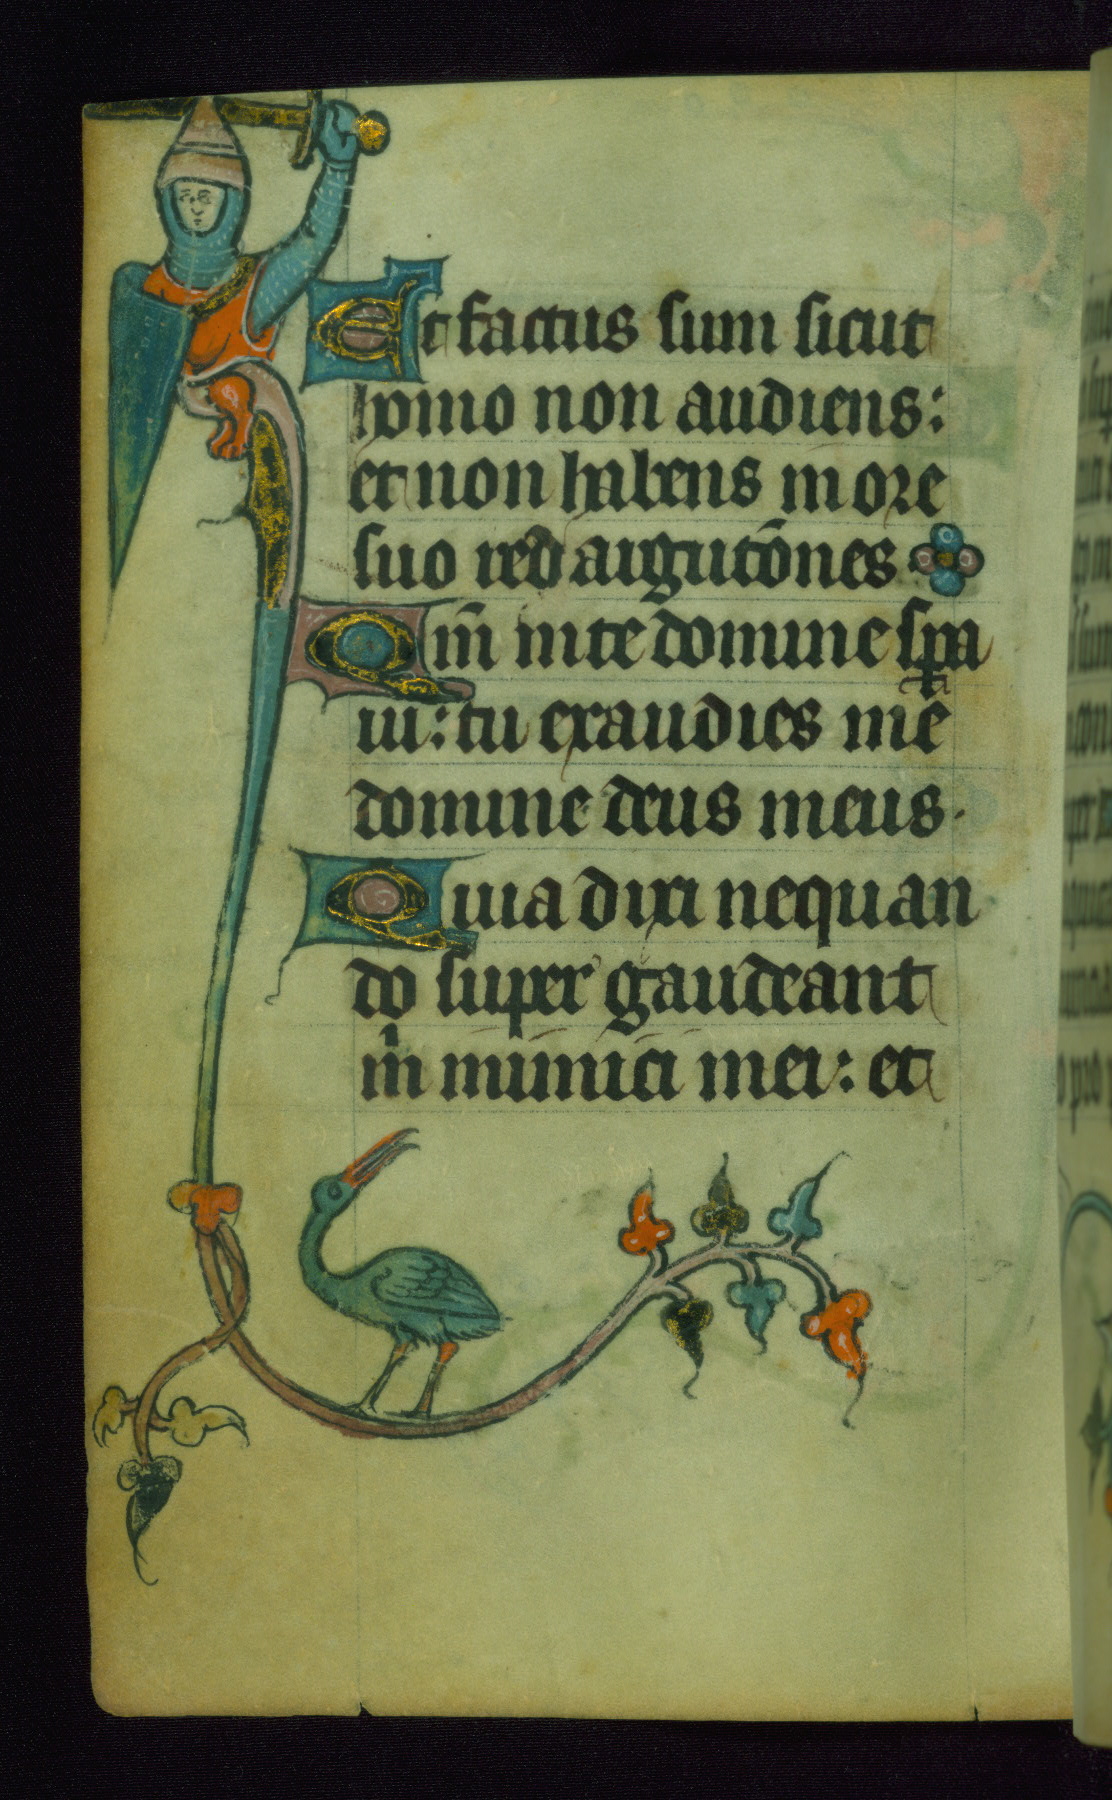 Et factus sum sicut
homo non audiens:
et non habens in ore
suo redargutōnes
Qm̄ in te domine spera
ui: tu exaudies mē
domine deus meus.
Quia dixi nequan
do super gaudeant
m̄ inimici mei: et